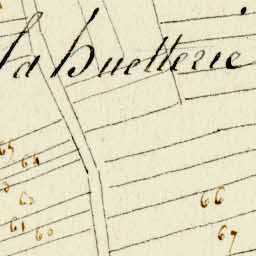 la huetterie
65
64
66
61
60
67